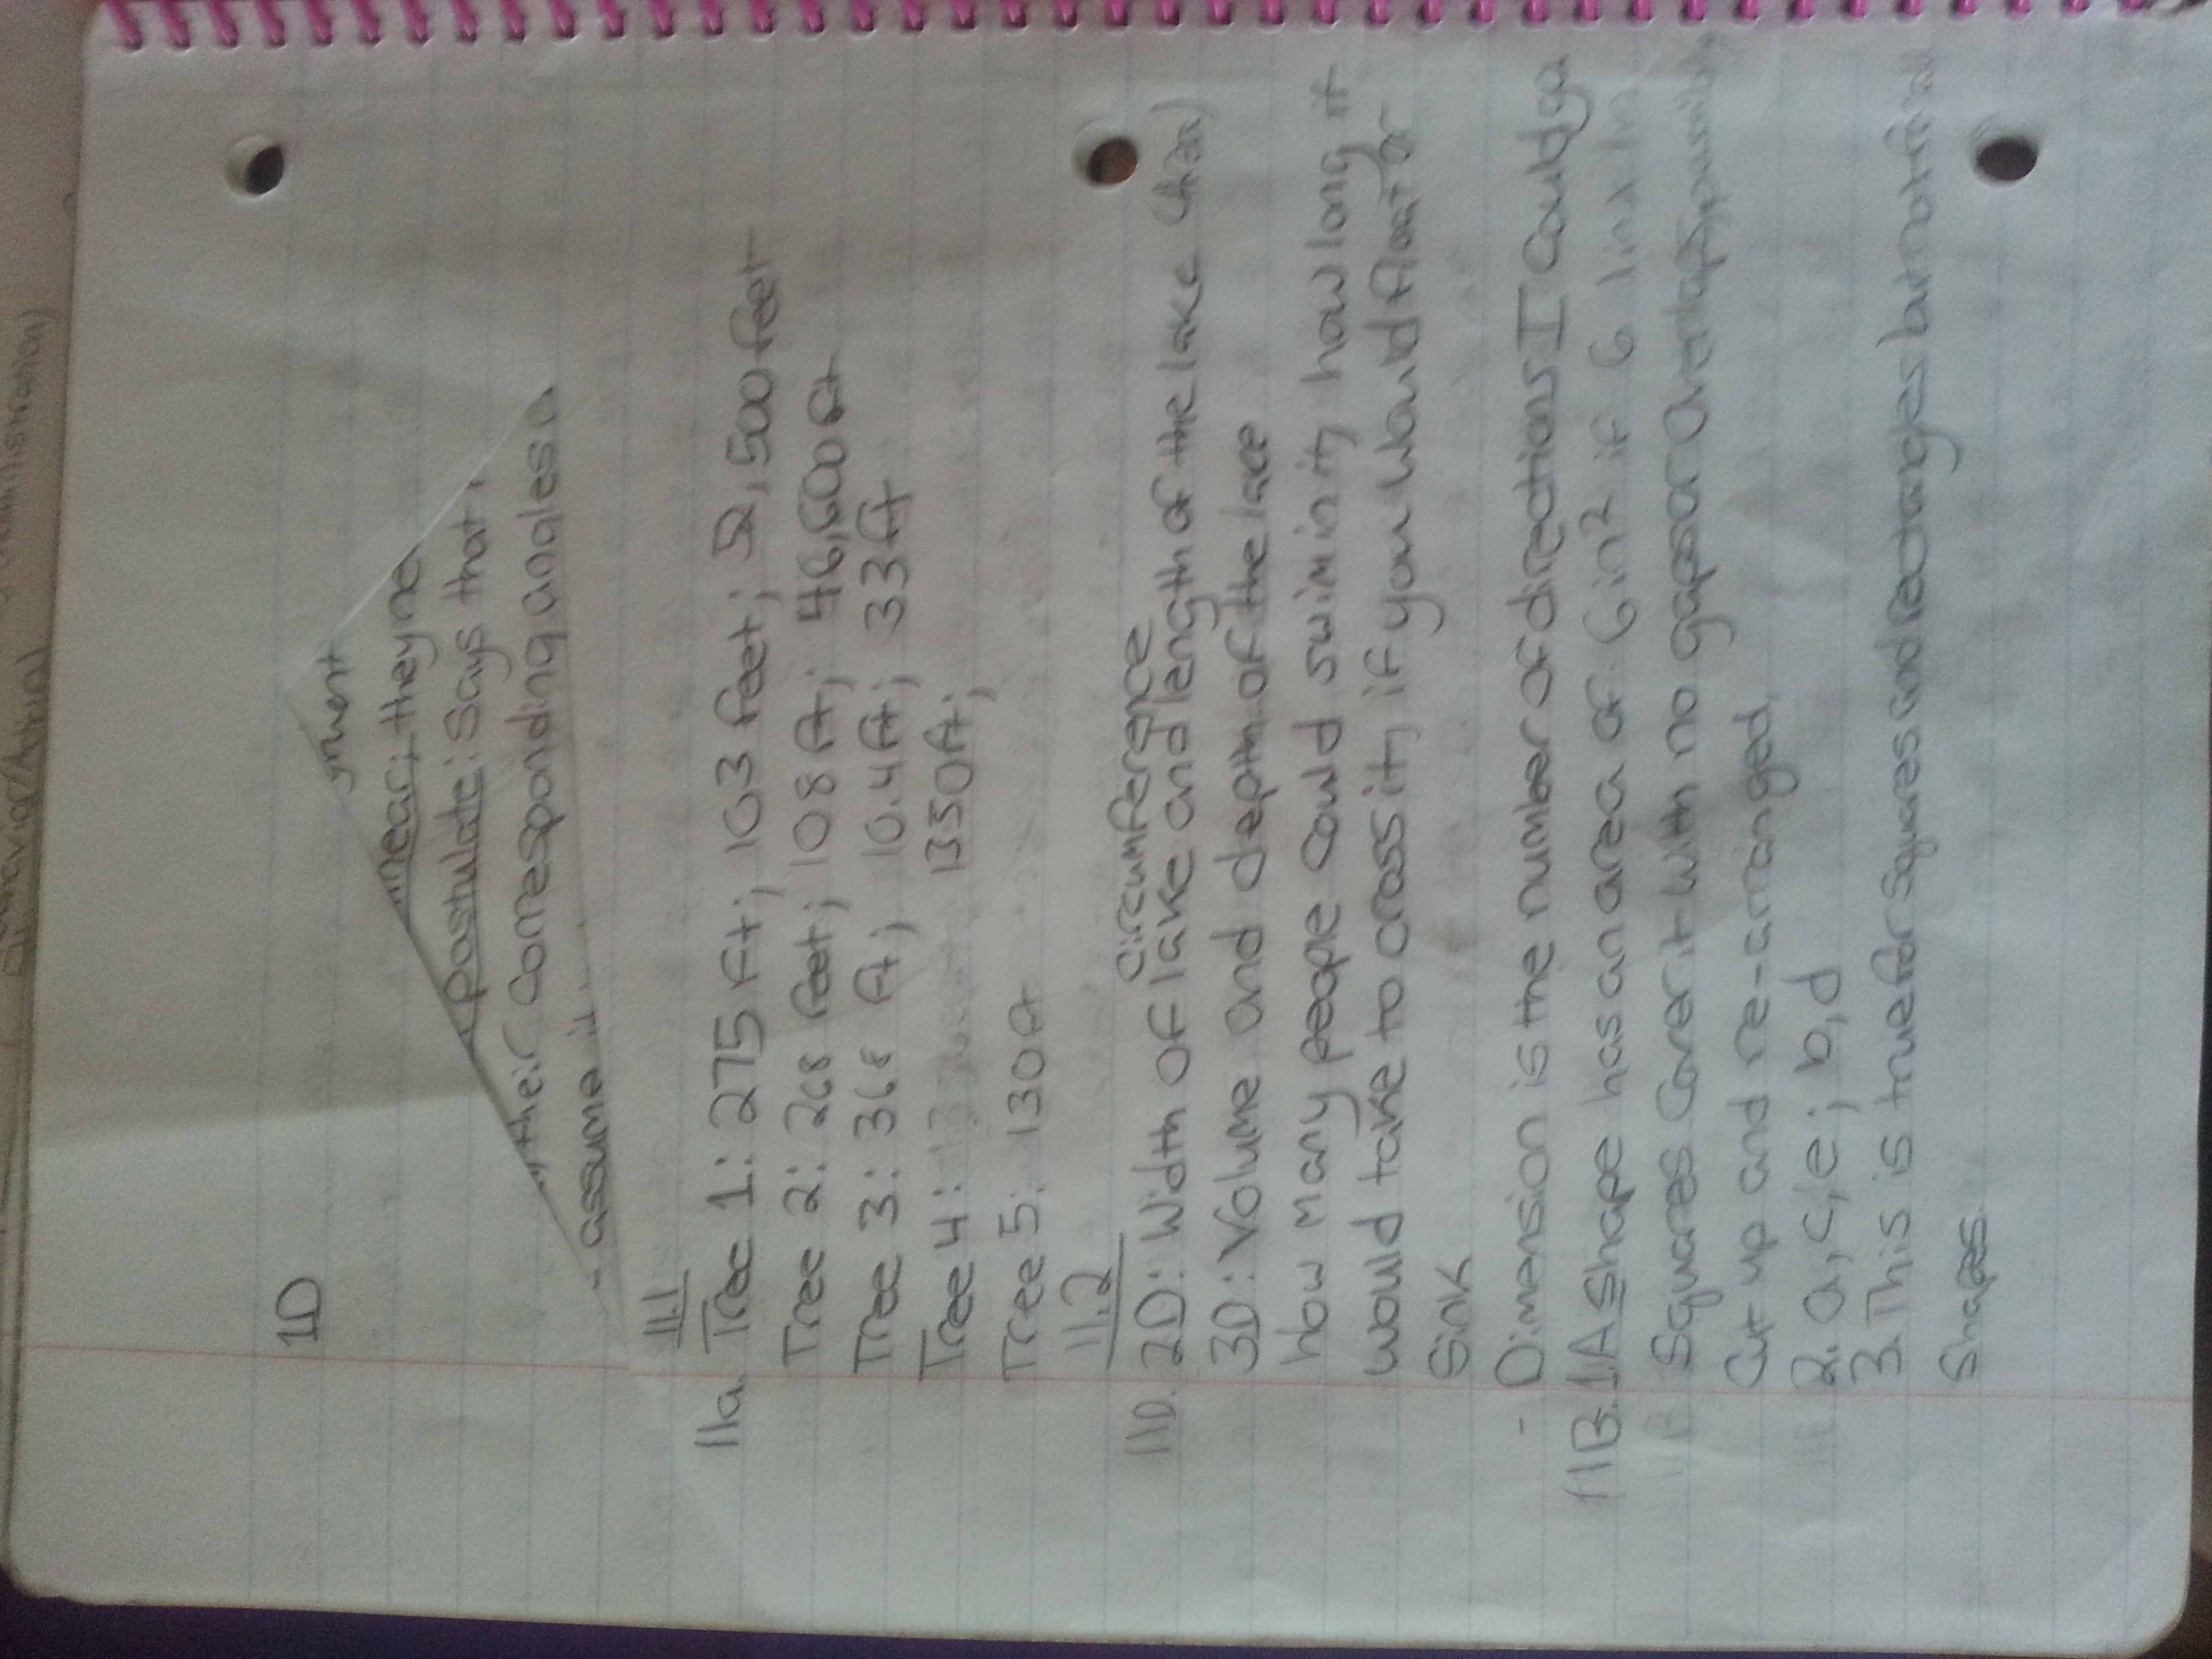 Behavior/Attrib)
1D
yment
inear; they ne
postulate: Says that
, their corresponding angles
- assume it
11.1
11a. Tree 1: 275 Ft; 103 feet; 52,500 feet
Tree 2: 268 feet; 108 ft; 46,600 ft
Tree 3: 368 ft; 10.4 ft; 33 ft
Tree 4: 1350 ft;
Tree 5: 130 ft
11.2
circumference
11D. 2D: Width of lake and length of the lake (Area)
3D: Volume and depth of the lake
how many people could swim in it, how long it
would take to cross it, if you would float or
sink
- Dimension is the number of directions I could go
11B. 1. A shape has an area of 6 in² if 6 1in x 1in
Squares cover it with no gaps or overlaps, possibly
cut up and re-arranged.
2. a, c, e; b, d
3. This is true for squares and rectangles but not for all
shapes.